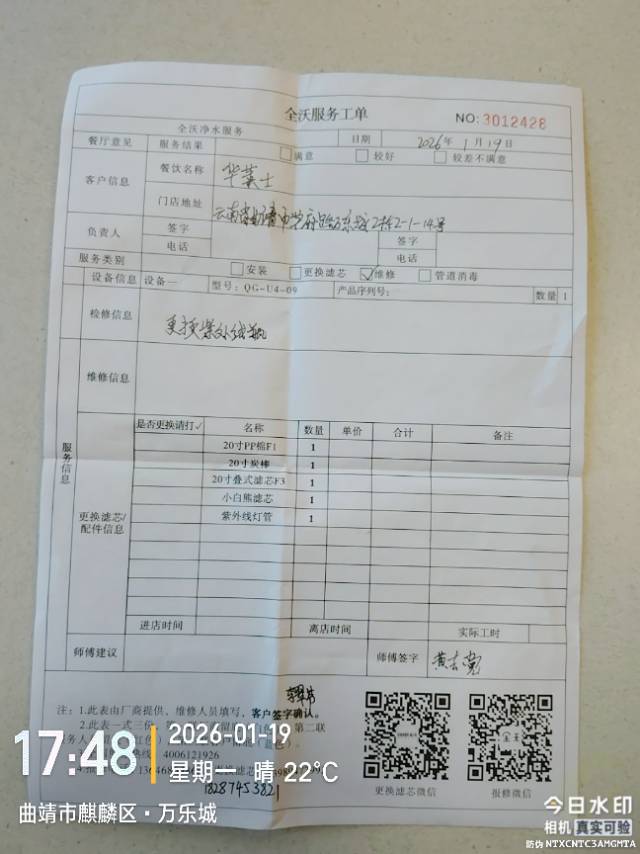 全沃服务工单
NO:3012428
全沃净水服务
日期 2026年 1月19日
餐厅意见 服务结果 满意 较好 较差不满意
客户信息 餐饮名称 华莱士
门店地址 2栋2-1-14号
负责人 签字 签字
电话 电话
服务类别 安装 更换滤芯 ✓维修 管道消毒
设备信息 设备一 型号:QG-U4-09 产品序列号: 数量 1
检修信息 更换紫外线
维修信息
服务信息
是否更换请打✓ 名称 数量 单价 合计 备注
20寸PP棉F1 1
20寸炭棒 1
20寸叠式滤芯F3 1
小白熊滤芯 1
紫外线灯管 1
更换滤芯/配件信息
进店时间 离店时间 实际工时
师傅建议 师傅签字
注:1.此表由厂商提供,维修人员填写,客户签字确认。
2.此表一式三份,第 第二联
服务人
4006121926
18287453821
更换滤芯微信 报修微信
17:48 2026-01-19
星期一 晴 22℃
曲靖市麒麟区·万乐城
今日水印
相机 真实可验
防伪 NTXCNTC3AMGMTA